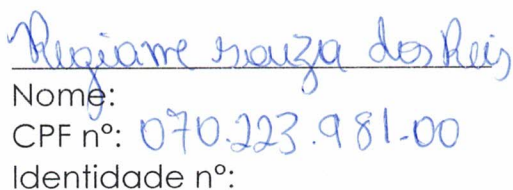 Regiane souza dos Reis
Nome:
CPF nº: 070.223.981-00
Identidade nº: